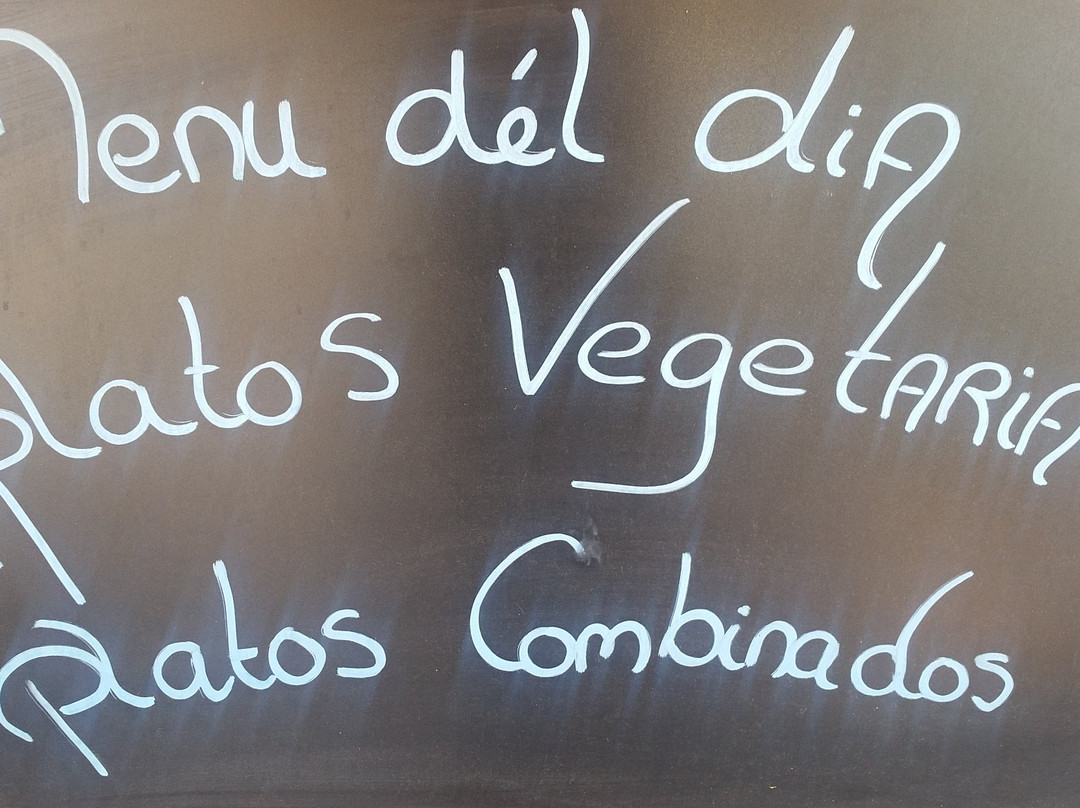 Menu dél diA
Platos VegetARiA
Platos Combinados